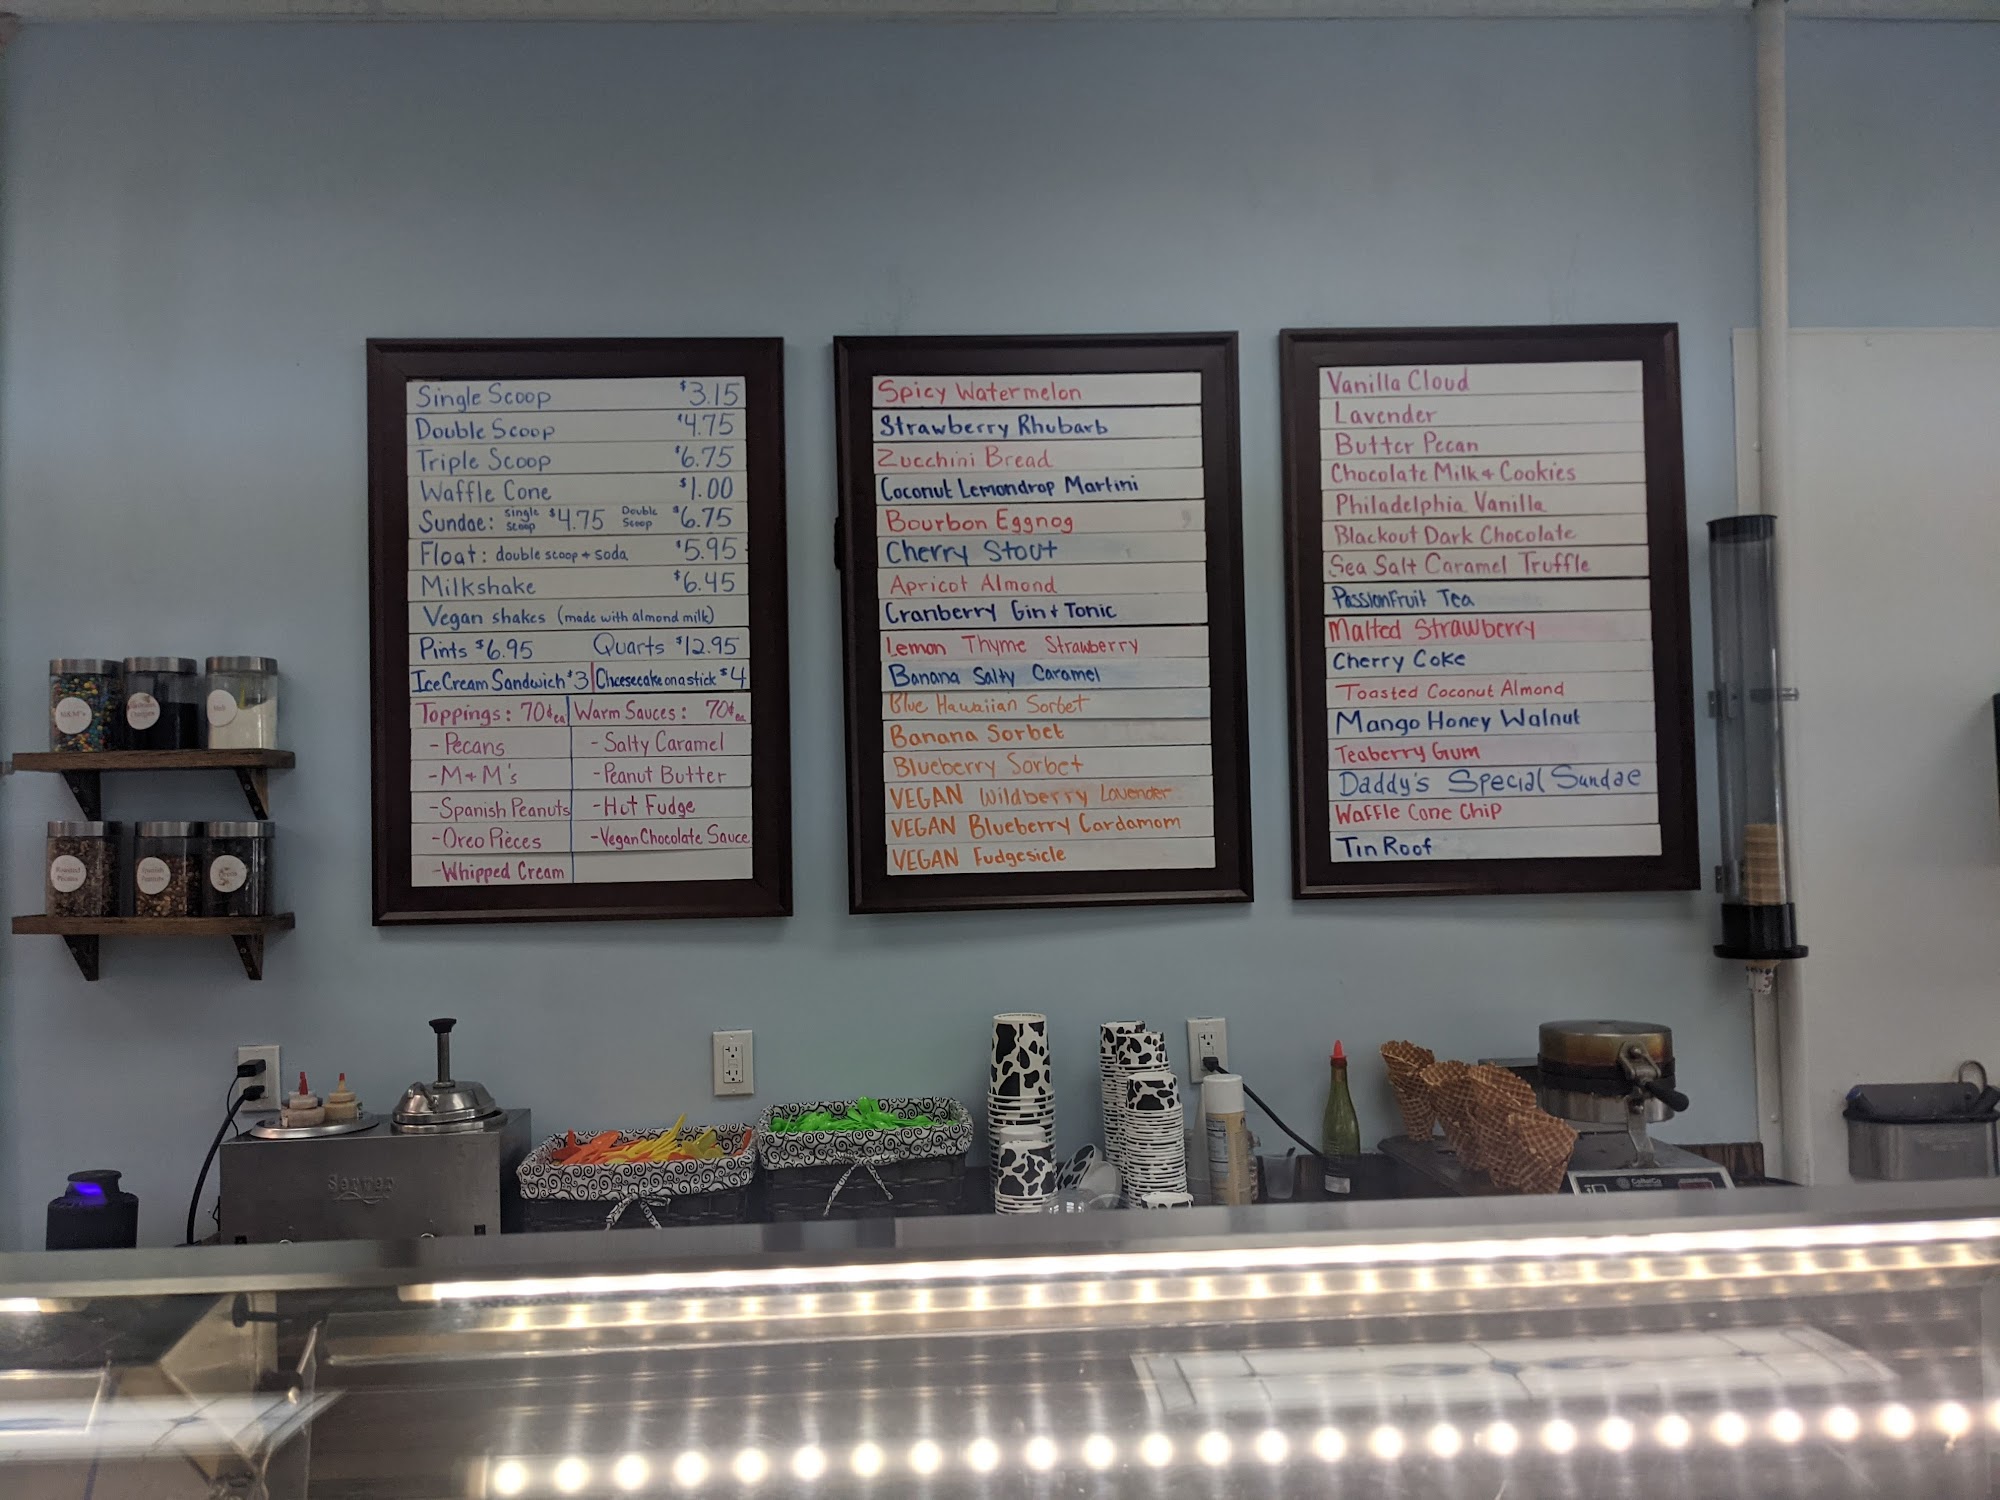 Single Scoop $3.15
Double Scoop $4.75
Triple Scoop $6.75
Waffle Cone $1.00
Sundae: Single Scoop $4.75 Double Scoop $6.75
Float: double scoop + soda $5.95
Milkshake $6.45
Vegan shakes (made with almond milk)
Pints $6.95 Quarts $12.95
Ice Cream Sandwich $3 Cheesecake on a stick $4
Toppings: 70¢ ea Warm Sauces: 70¢ ea
- Pecans - Salty Caramel
- M+M's - Peanut Butter
- Spanish Peanuts - Hot Fudge
- Oreo Pieces - Vegan Chocolate Sauce
- Whipped Cream
Spicy Watermelon
Strawberry Rhubarb
Zucchini Bread
Coconut Lemondrop Martini
Bourbon Eggnog
Cherry Stout
Apricot Almond
Cranberry Gin + Tonic
Lemon Thyme Strawberry
Banana Salty Caramel
Blue Hawaiian Sorbet
Banana Sorbet
Blueberry Sorbet
VEGAN Wildberry Lavender
VEGAN Blueberry Cardamom
VEGAN Fudgesicle
Vanilla Cloud
Lavender
Butter Pecan
Chocolate Milk + Cookies
Philadelphia Vanilla
Blackout Dark Chocolate
Sea Salt Caramel Truffle
PassionFruit Tea
Malted Strawberry
Cherry Coke
Toasted Coconut Almond
Mango Honey Walnut
Teaberry Gum
Daddy's Special Sundae
Waffle Cone Chip
Tin Roof
M&M's
Roasted Pecans
Spanish Peanuts
Server